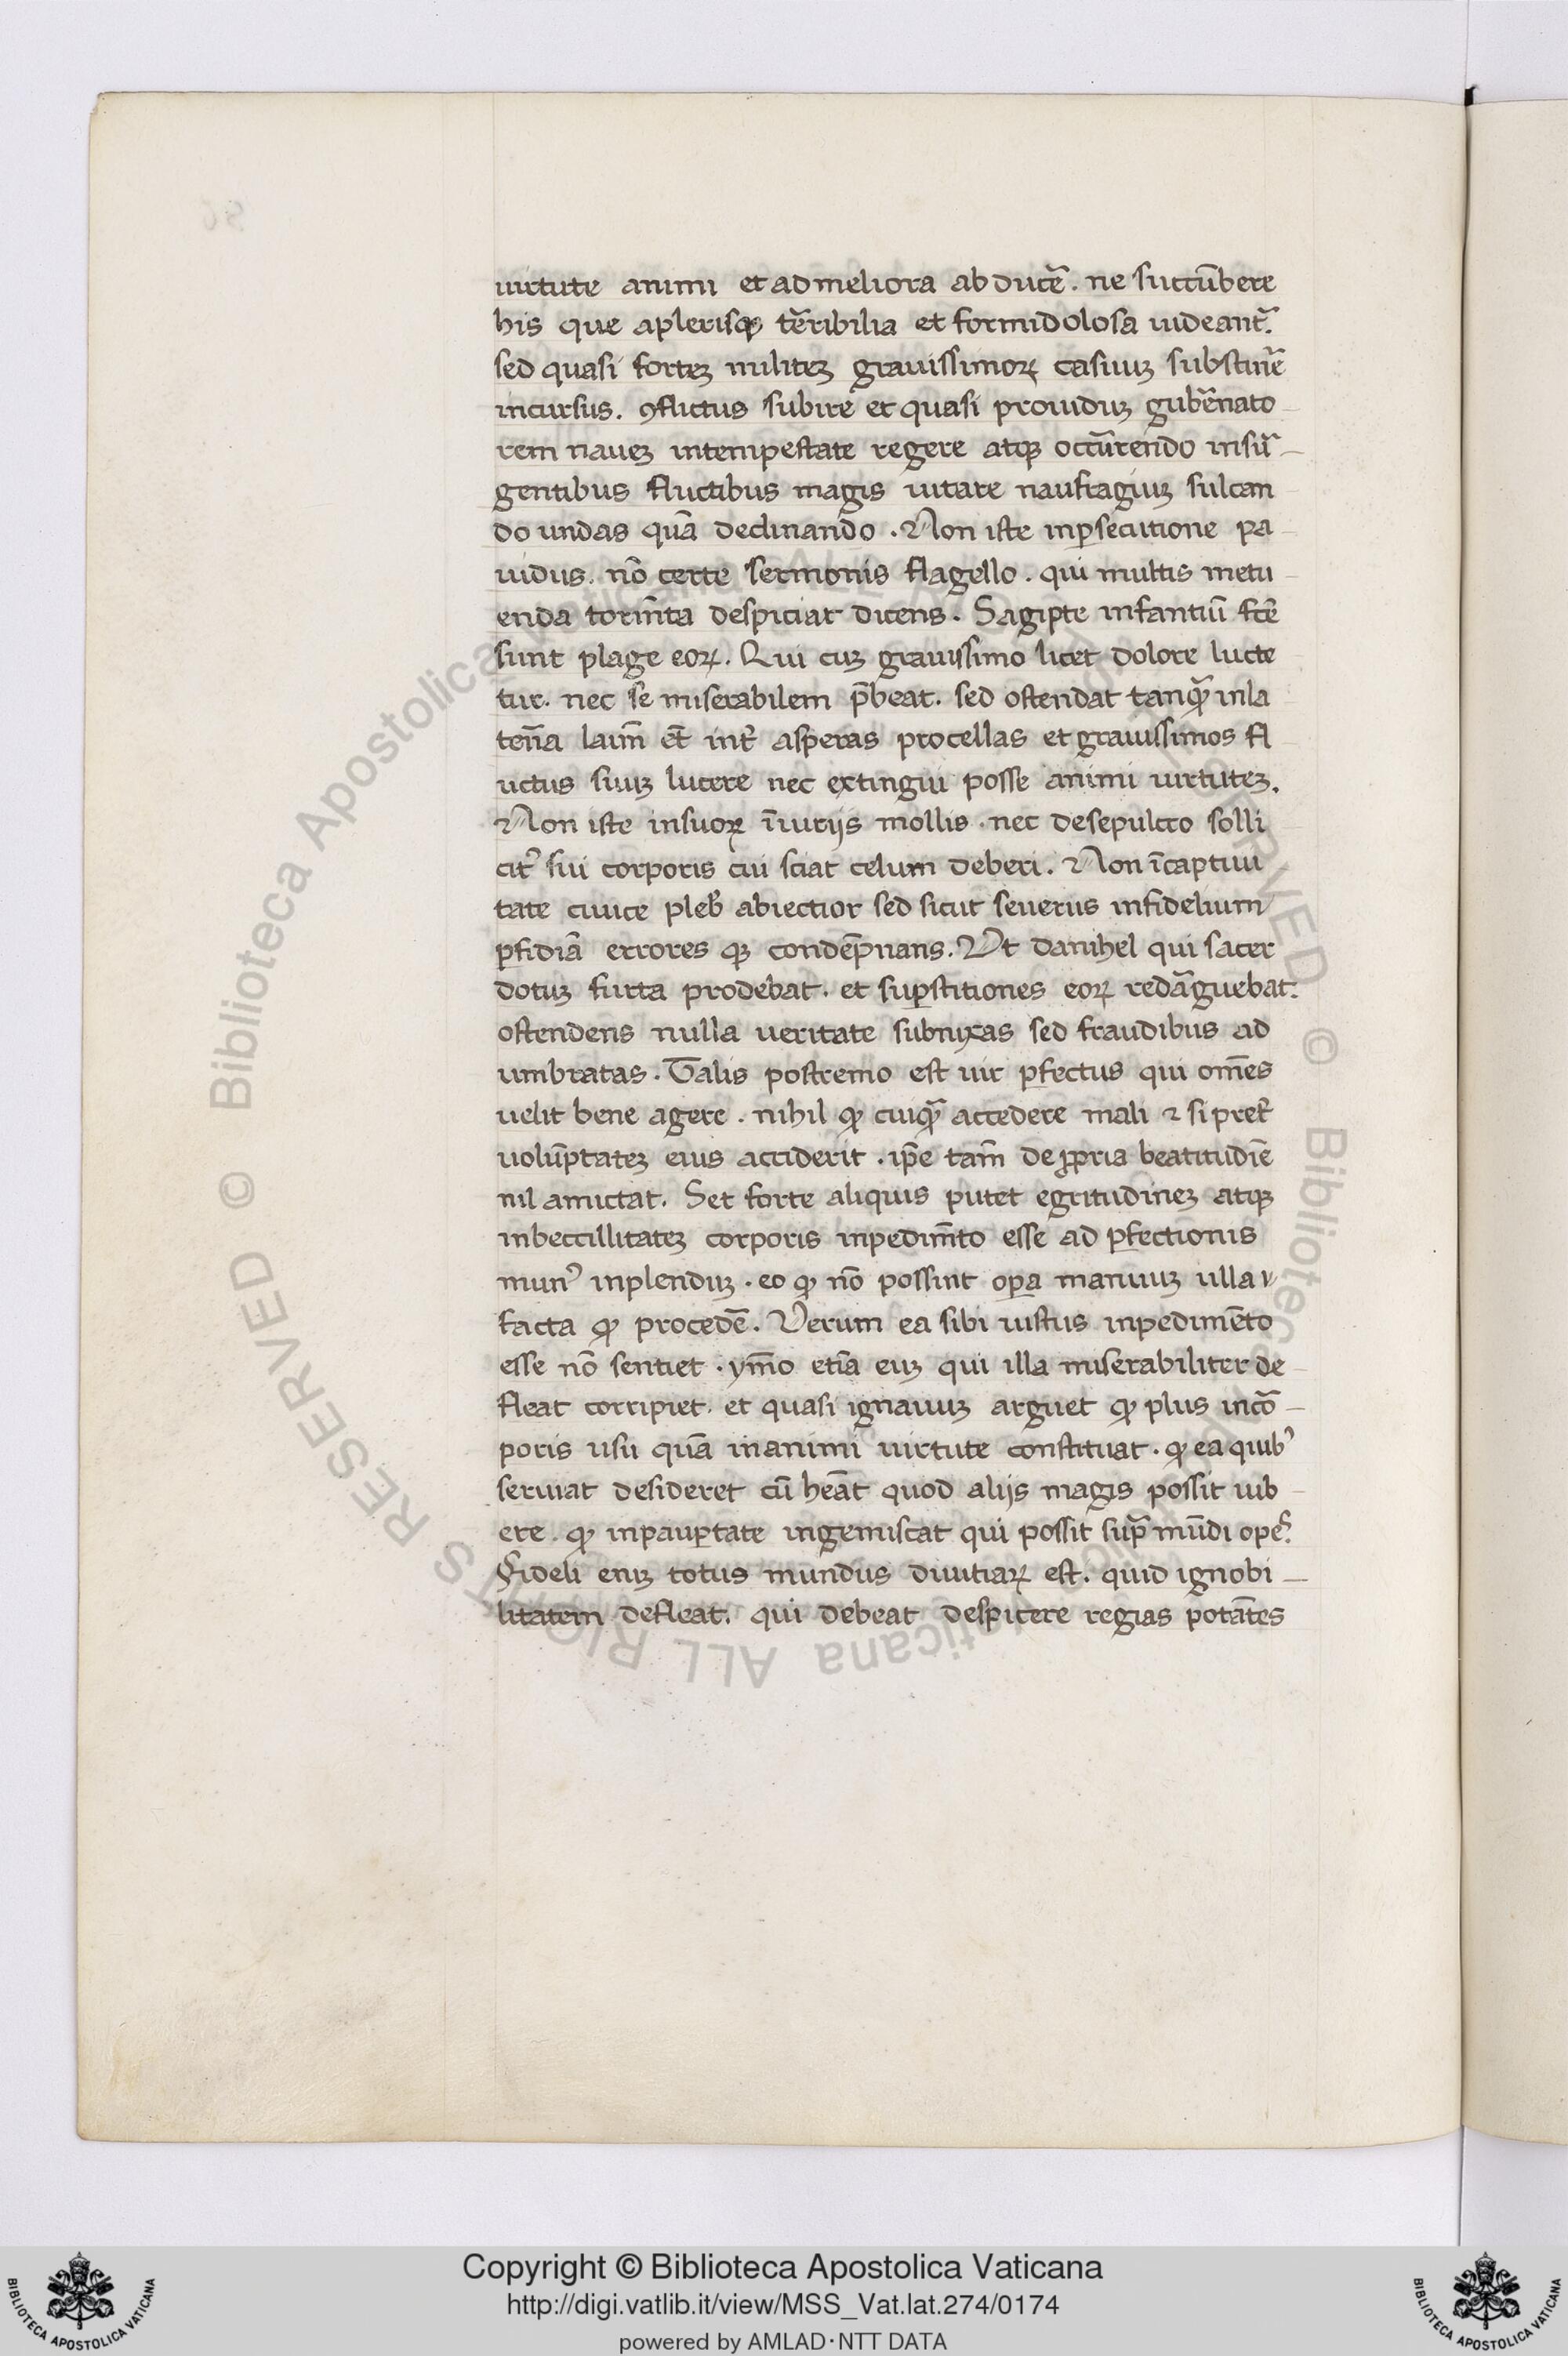 uirtute animi et ad meliora ab ducē̃. ne succūbere
his que a plerisqꝫ t̃ribilia et formidolosa uideant̃.
sed quasi forteꝫ militeꝫ grauissimoꝝ casuuꝫ substinẽ
incursus. ꝯflictus subire et quasi prouiduꝫ gub̃nato
rem naueꝫ intempestate regere atqꝫ occũrendo insũ
gentibus fluctibus magis uitare naufragiuꝫ sulcan
do undas quā declinando. Non iste inꝑsecutione pa
uidus. nō certe sermonis flagello. qui multis metu
enda torm̄ta despiciat dicens. Sagipte infantiū fcē
sunt plage eoꝝ. Qui cuꝫ grauissimo licet dolore lucte
tur. nec se miserabilem p̄beat. sed ostendat tanqᷓ inla
ten̄a laim̄ et̄ int̉ asperas procellas et grauissimos fl
uctus suuꝫ lucere nec extingui posse animi uirtuteꝫ.
Non iste insuoꝝ īiuriis mollis. nec desepulcro solli
cit̉ sui corporis cui sciat celum deberi. Non īcaptiui
tate ciuice pleb̉ abiectior sed sicut seuerus infidelium
ꝑfidiā errores qꝫ condēpnans. Vt danihel qui sacer
dotuꝫ furta prodebat. et suꝑstitiones eoꝝ redãguebat.
ostendens nulla ueritate subnixas sed fraudibus ad
umbratas. Talis postremo est uir ꝑfectus qui om̄es
uelit bene agere. nihil qꝫ cuiqᷓ accedere mali ⁊ si pret̉
uolūptateꝫ eius acciderit. ip̄e tam̄ de ꝓpria beatitudīe
nil amictat. Set forte aliquis putet egritudineꝫ atqꝫ
inbeccillitateꝫ corporis inpedim̄to esse ad ꝑfectionis
mun̉ inplenduꝫ. eo ꝙ nō possint oꝑa manuuꝫ illa
facta ꝙ procedẽ. Verum ea sibi iustus inpedimēto
esse nō sentiet. ymō etiā euꝫ qui illa miserabiliter de
fleat corripiet. et quasi ignauuꝫ arguet ꝙ plus incõ
poris usu quā inanimi uirtute constituat. ꝙ ea quib̉
seruiat desideret cū heāt quod aliis magis possit iub
ere. ꝙ inpauꝑtate ingemiscat qui possit supᷓ mūdi opẻ.
Fideli eniꝫ totus mundus diuitiaꝝ est. quid ignobi
litatem defleat. qui debeat despicere regias potātes
Copyright © Biblioteca Apostolica Vaticana
http://digi.vatlib.it/view/MSS_Vat.lat.274/0174
powered by AMLAD·NTT DATA